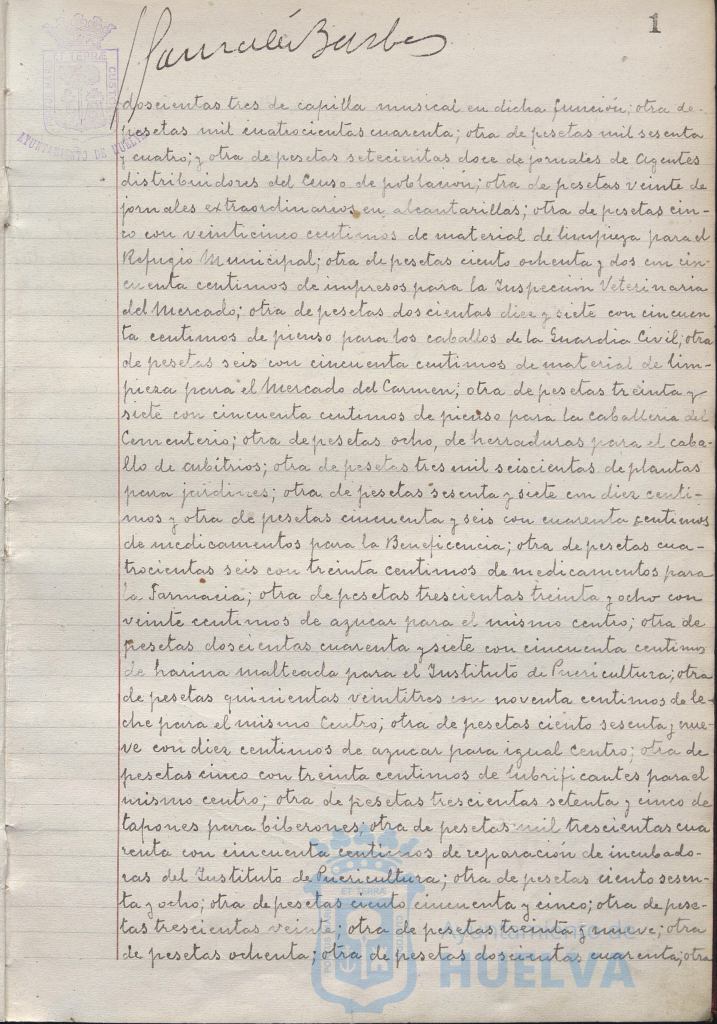 1
AYUNTAMIENTO DE HUELVA
doscientas tres de capilla musical en dicha función; otra de
pesetas mil cuatrocientas cuarenta; otra de pesetas mil sesenta
y cuatro; y otra de pesetas setecientas doce de jornales de Agentes
distribuidores del Censo de población; otra de pesetas veinte de
jornales extraordinarios en alcantarillas; otra de pesetas cin-
co con veinticinco centimos de material de limpieza para el
Refugio Municipal; otra de pesetas ciento ochenta y dos con cin-
cuenta centimos de impresos para la Inspección Veterinaria
del Mercado; otra de pesetas doscientas diez y siete con cincuen
ta centimos de pienso para los caballos de la Guardia Civil; otra
de pesetas seis con cincuenta centimos de material de lim-
pieza para el Mercado del Carmen; otra de pesetas treinta y
siete con cincuenta centimos de pienso para la caballeria del
Cementerio; otra de pesetas ocho, de herraduras para el caba-
llo de arbitrios; otra de pesetas tres mil seiscientas de plantas
para jardines; otra de pesetas sesenta y siete con diez centi-
mos y otra de pesetas cincuenta y seis con cuarenta centimos
de medicamentos para la Beneficencia; otra de pesetas cua-
trocientas seis con treinta centimos de medicamentos para
la Farmacia; otra de pesetas trescientas treinta y ocho con
veinte centimos de azucar para el mismo centro; otra de
pesetas doscientas cuarenta y siete con cincuenta centimos
de harina malteada para el Instituto de Puericultura; otra
de pesetas quinientas veintitres con noventa centimos de le-
che para el mismo Centro; otra de pesetas ciento sesenta y nue-
ve con diez centimos de azucar para igual centro; otra de
pesetas cinco con treinta centimos de lubrificantes para el
mismo centro; otra de pesetas trescientas setenta y cinco de
tapones para biberones; otra de pesetas mil trescientas cua
renta con cincuenta centimos de reparación de incubado-
ras del Instituto de Puericultura; otra de pesetas ciento sesen-
ta y ocho; otra de pesetas ciento cincuenta y cinco; otra de pese-
tas trescientas veinte; otra de pesetas treinta y nueve; otra
de pesetas ochenta; otra de pesetas doscientas cuarenta; otra
Ayuntamiento de
HUELVA